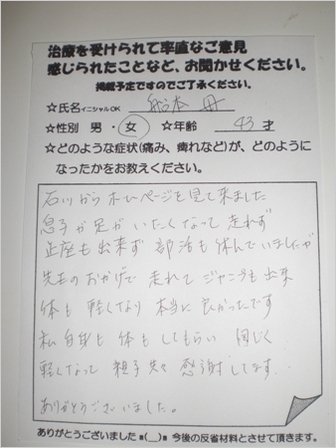 治療を受けられて率直なご意見
感じられたことなど、お聞かせください。
掲載予定ですのでご了承ください。
☆氏名イニシャルOK 船本 母
☆性別 男・女 ☆年齢 43 才
☆どのような症状(痛み、痺れなど)が、どのように
なったかをお教えください。
石川からホームページを見て来ました
息子が足がいたくなって走れず
正座も出来ず 部活も休んでいましたが
先生のおかげで 走れて ジャンプも出来
体も軽くなり 本当に良かったです
私自身も 体も してもらい 同じく
軽くなって 親子共々 感謝してます。
ありがとうございました。
ありがとうございましたm(__)m 今後の反省材料とさせて頂きます。